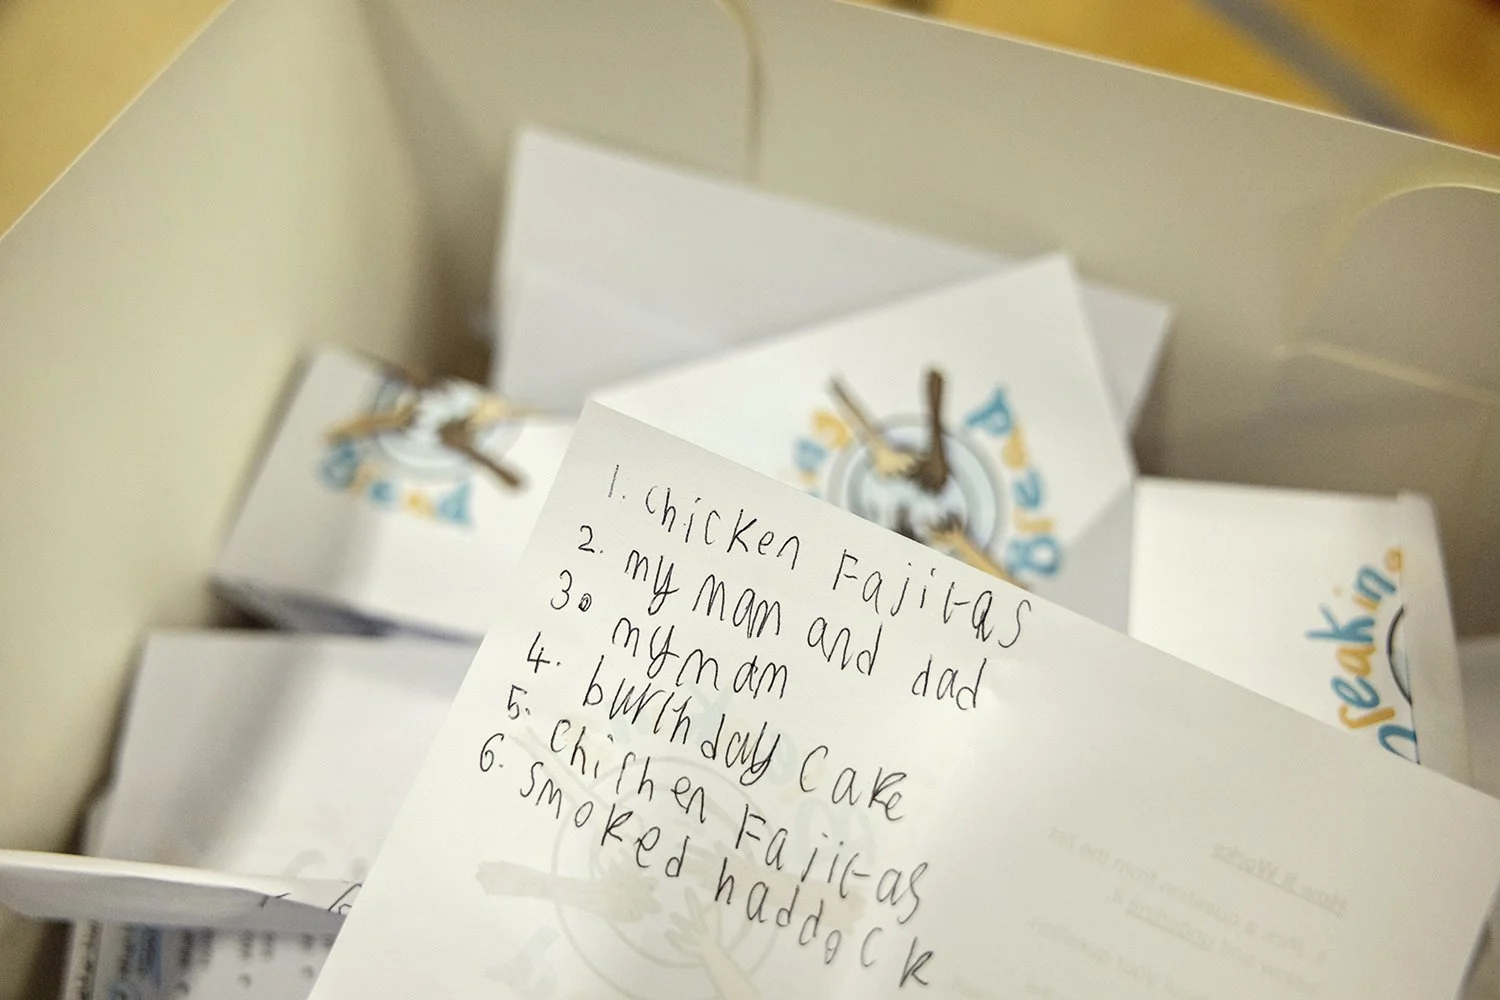 1. chicken Fajitas
2. my mam and dad
3. my mam
4. burthday cake
5. chichen Fajitas
6. smoked haddock
Bread
Bread
Breakin
How it Works